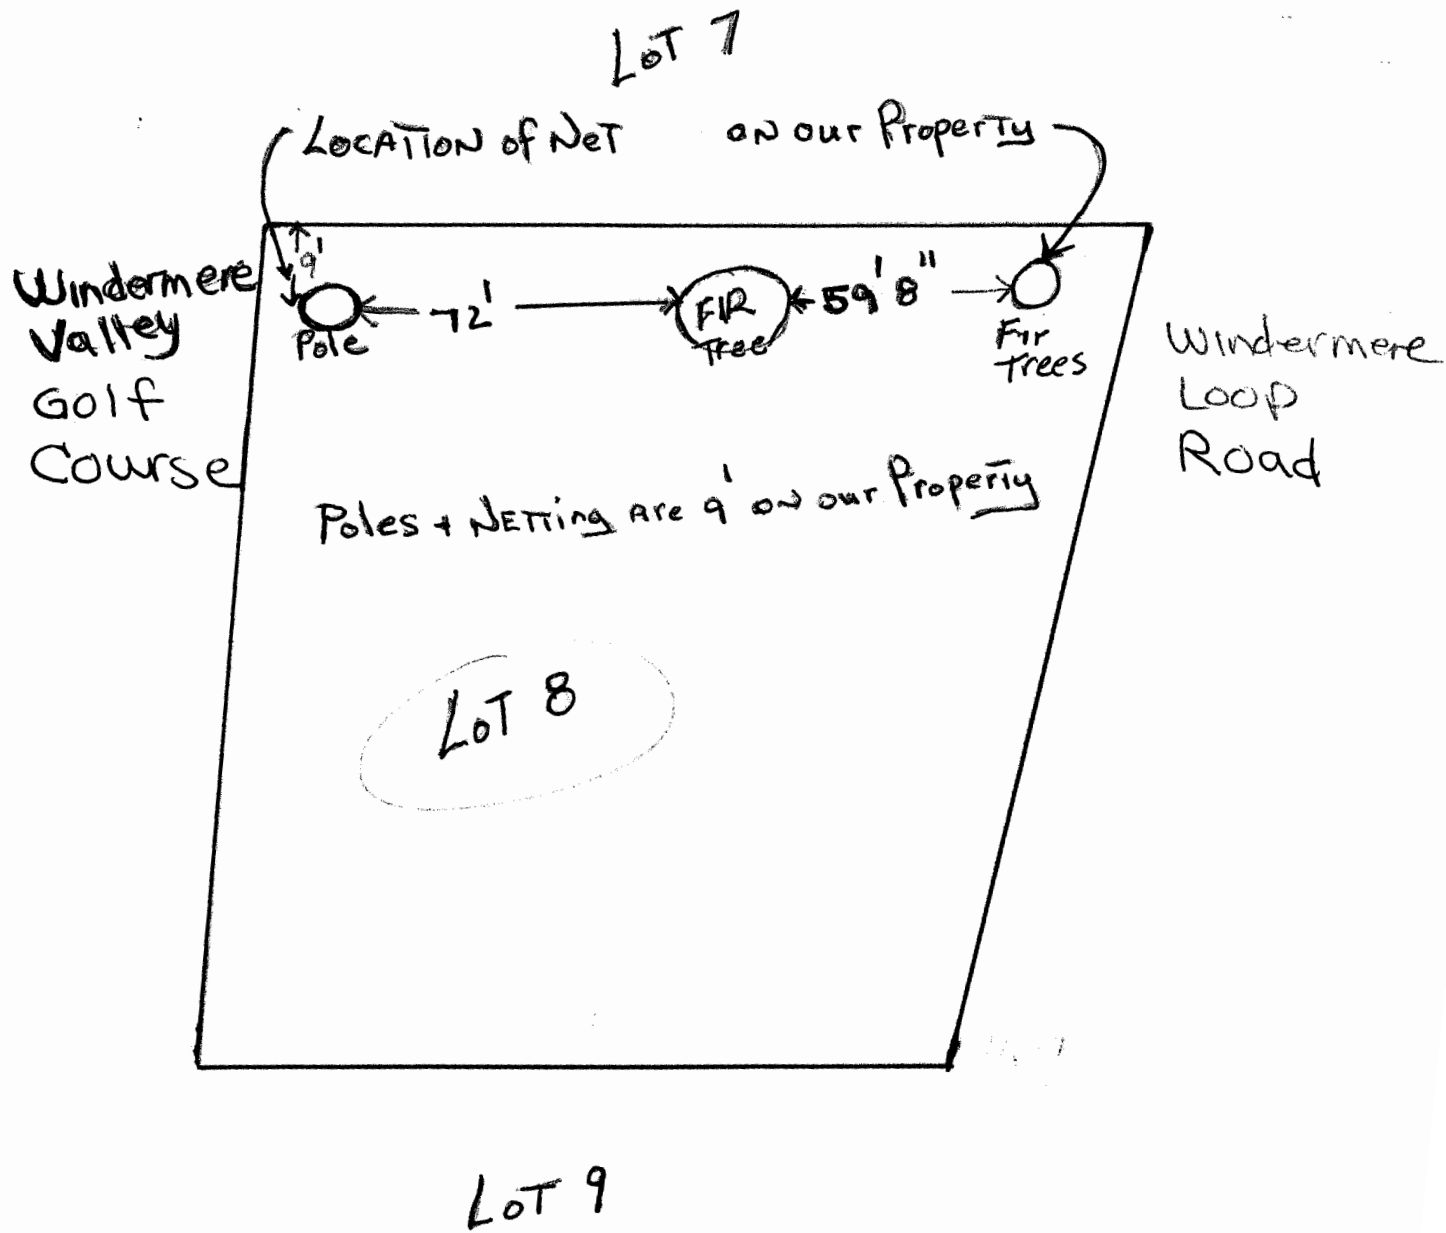 LOT 7
LOCATION of NET ON our Property
9'
Windermere
Valley
Golf
Course
Pole
72'
FIR
Tree
59' 8"
Fir
Trees
Windermere
Loop
Road
Poles + NETTing Are 9' ON our Property
LOT 8
LOT 9